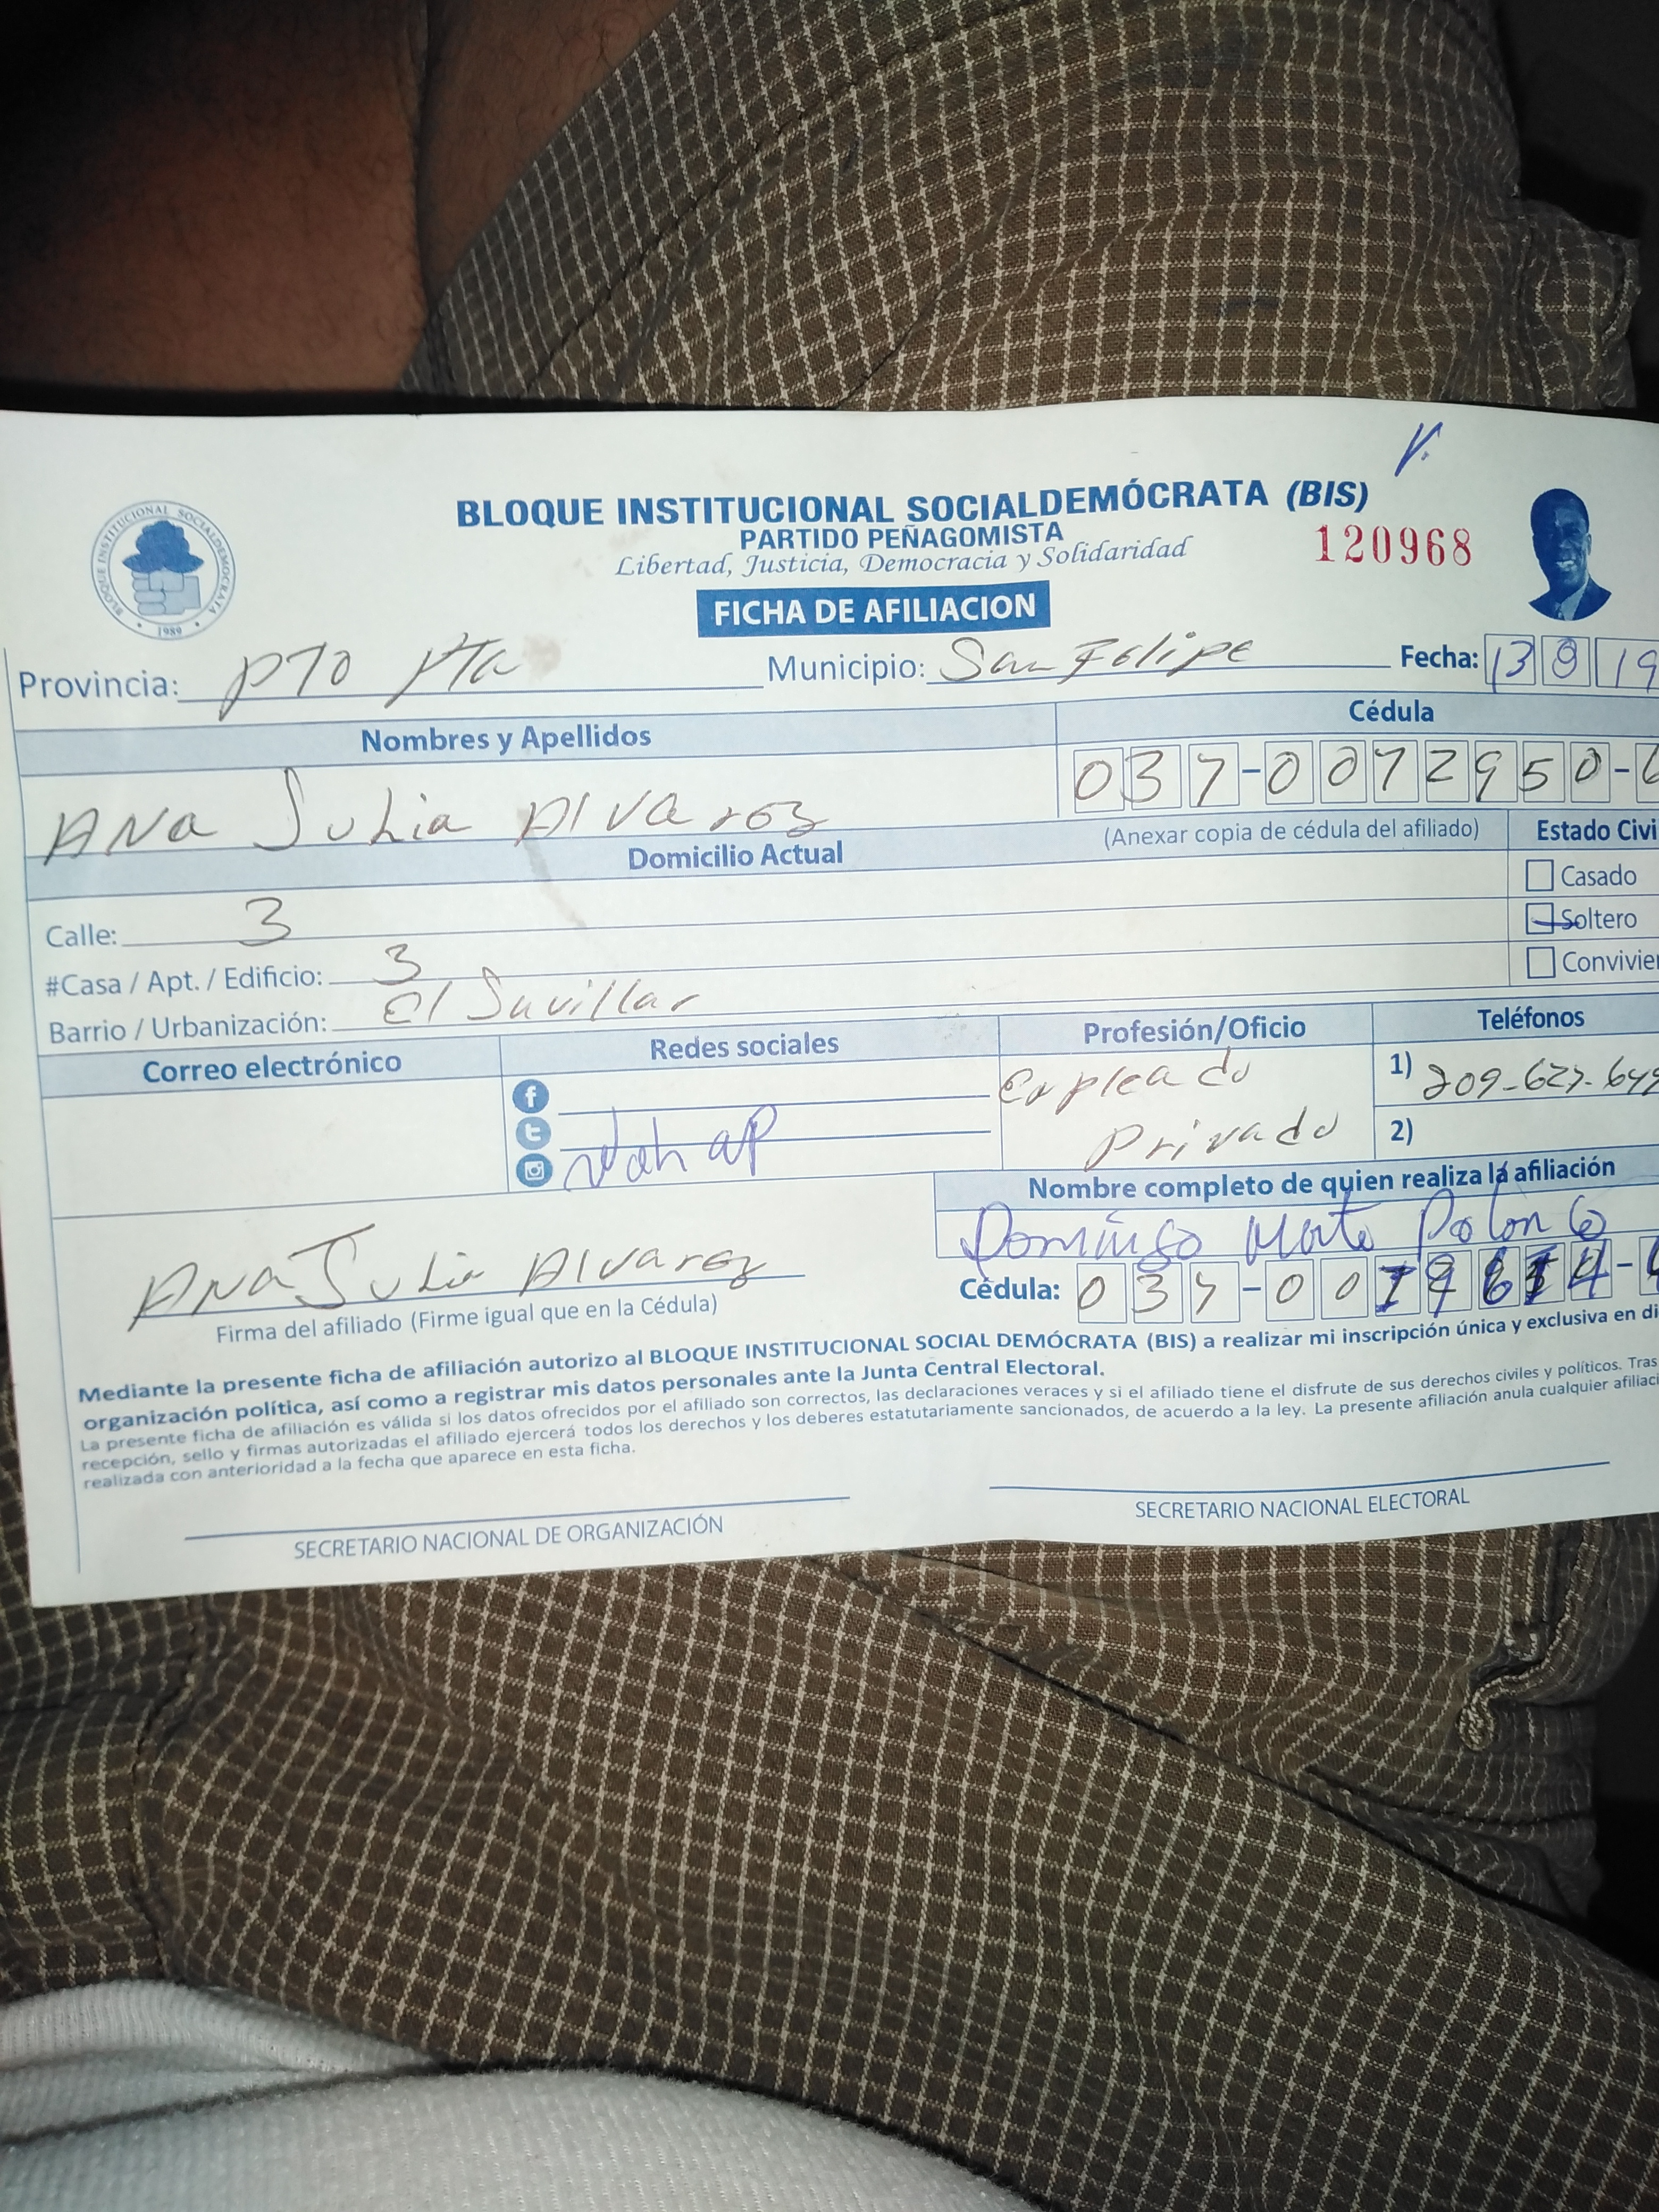 BLOQUE INSTITUCIONAL SOCIALDEMÓCRATA (BIS)
PARTIDO PEÑAGOMISTA
Libertad, Justicia, Democracia y Solidaridad
120968
BLOQUE INSTITUCIONAL SOCIALDEMOCRATA
1989
FICHA DE AFILIACION
Provincia: PTO PTa Municipio: San Felipe Fecha: 13 8 19
Nombres y Apellidos Cédula
ANa Julia Alvarez 037-0072950-
(Anexar copia de cédula del afiliado) Estado Civi
Domicilio Actual
Casado
Calle: 3
Soltero
#Casa / Apt. / Edificio: 3
Convivien
Barrio / Urbanización: El Javillar
Correo electrónico Redes sociales Profesión/Oficio Teléfonos
Empleado Privado
1) 809-627-649
2)
Nombre completo de quien realiza la afiliación
Domingo Polonco
ANA Julia Alvarez
Cédula: 037-00
Firma del afiliado (Firme igual que en la Cédula)
Mediante la presente ficha de afiliación autorizo al BLOQUE INSTITUCIONAL SOCIAL DEMÓCRATA (BIS) a realizar mi inscripción única y exclusiva en di
organización política, así como a registrar mis datos personales ante la Junta Central Electoral.
La presente ficha de afiliación es válida si los datos ofrecidos por el afiliado son correctos, las declaraciones veraces y si el afiliado tiene el disfrute de sus derechos civiles y políticos. Tras
recepción, sello y firmas autorizadas el afiliado ejercerá todos los derechos y los deberes estatutariamente sancionados, de acuerdo a la ley. La presente afiliación anula cualquier afiliaci
realizada con anterioridad a la fecha que aparece en esta ficha.
SECRETARIO NACIONAL DE ORGANIZACIÓN SECRETARIO NACIONAL ELECTORAL